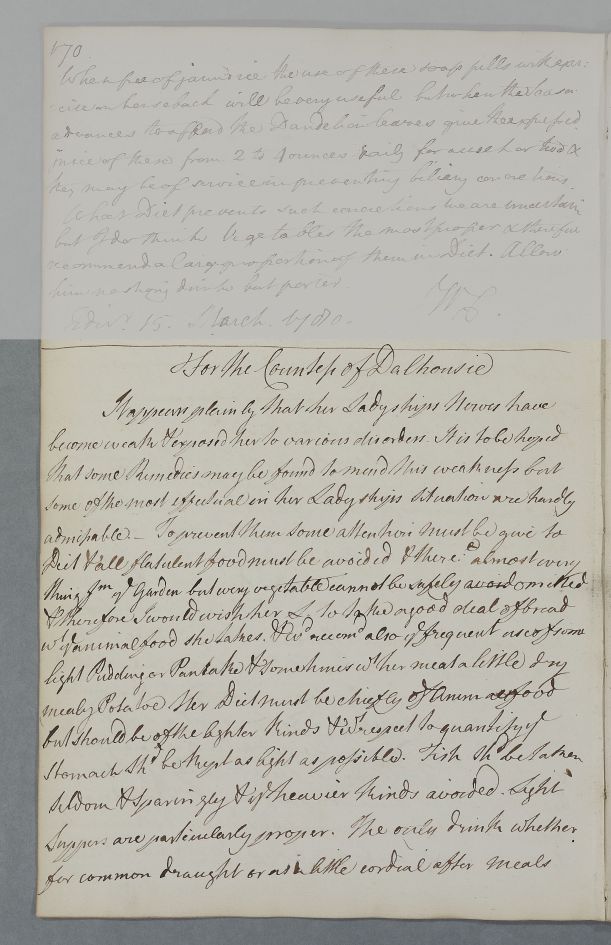 170.
When free of jaundice the use of these soap pills with exer:
cise on horseback will be very useful but when the season
advances to afford the Dandelion leaves give the expressed
juice of these from 2 to 4 ounces daily for
may be of service in preventing biliary concretions.
What Diet prevents such concretions we are uncertain
but I do think Vegetables the most proper & therefore
recommend a large proportion of them in Diet. Allow
him no strong drink but porter.
Edinr. 15. March. 1780. WC.
For the Countess of Dalhousie
It appears plainly that her Ladyships Nerves have
become weak & exposed her to various disorders. It is to be hoped
that some Remedies may be found to mend this weakness but
some of the most effectual in her Ladyships situation are hardly
admissable – To prevent them some attention must be give to
Diet & all flatulent food must be avoided & there: almost every
thing fm ye Garden but very vegetable cannot be safely omitted
& therefore I would wish her L. to take a good deal of bread
wt animal food she takes. & I wd recomd also ye frequent use of some
light Pudding or Pancake & sometimes wt her meat a little dry
mealy Potatoe Her Diet must be chiefly of Animal food
but should be of the lighter kinds & wt respect to quantity ye
Stomach shd be kept as light as possible. Fish shd be taken
seldom & sparingly & ye heavier kinds avoided. Light
Suppers are particularly proper. The only drink whether
for common draught or as a little cordial after meals